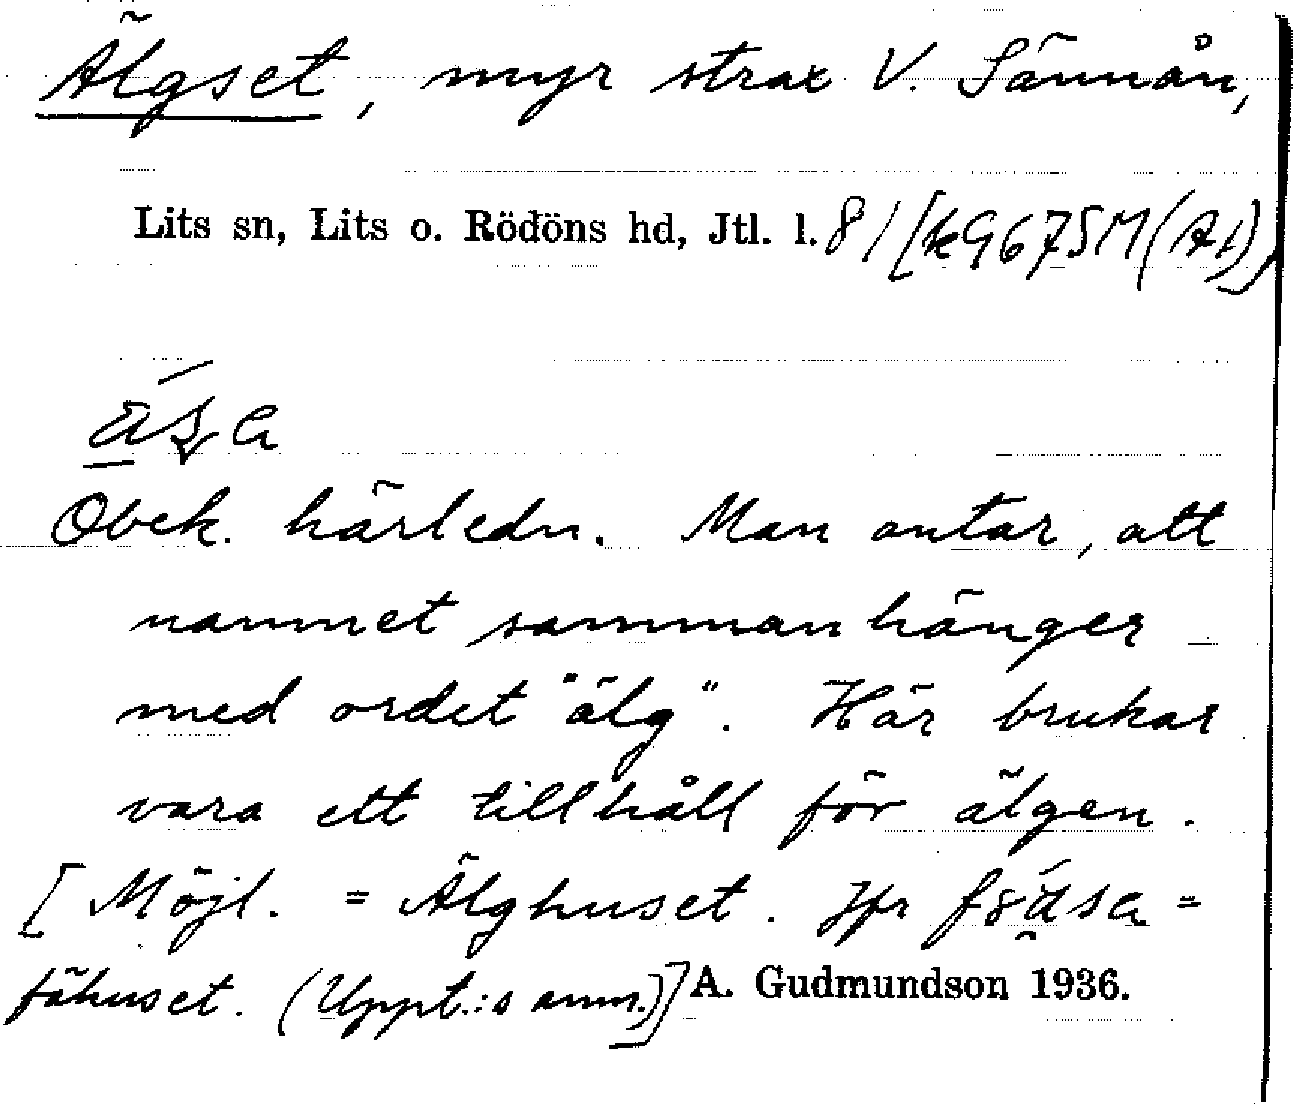 Älgset, myr strax V. Sännån,
Lits sn, Lits o. Rödöns hd, Jtl. l. 81 [k9675M(A1)]
Obek. härledn. Man antar, att
namnet sammanhänger
med ordet "älg". Här brukar
vara ett tillhåll för älgen.
[Möjl. = Älghuset. Jfr =
fähuset. (Uppt.:s anm.)] A. Gudmundson 1936.